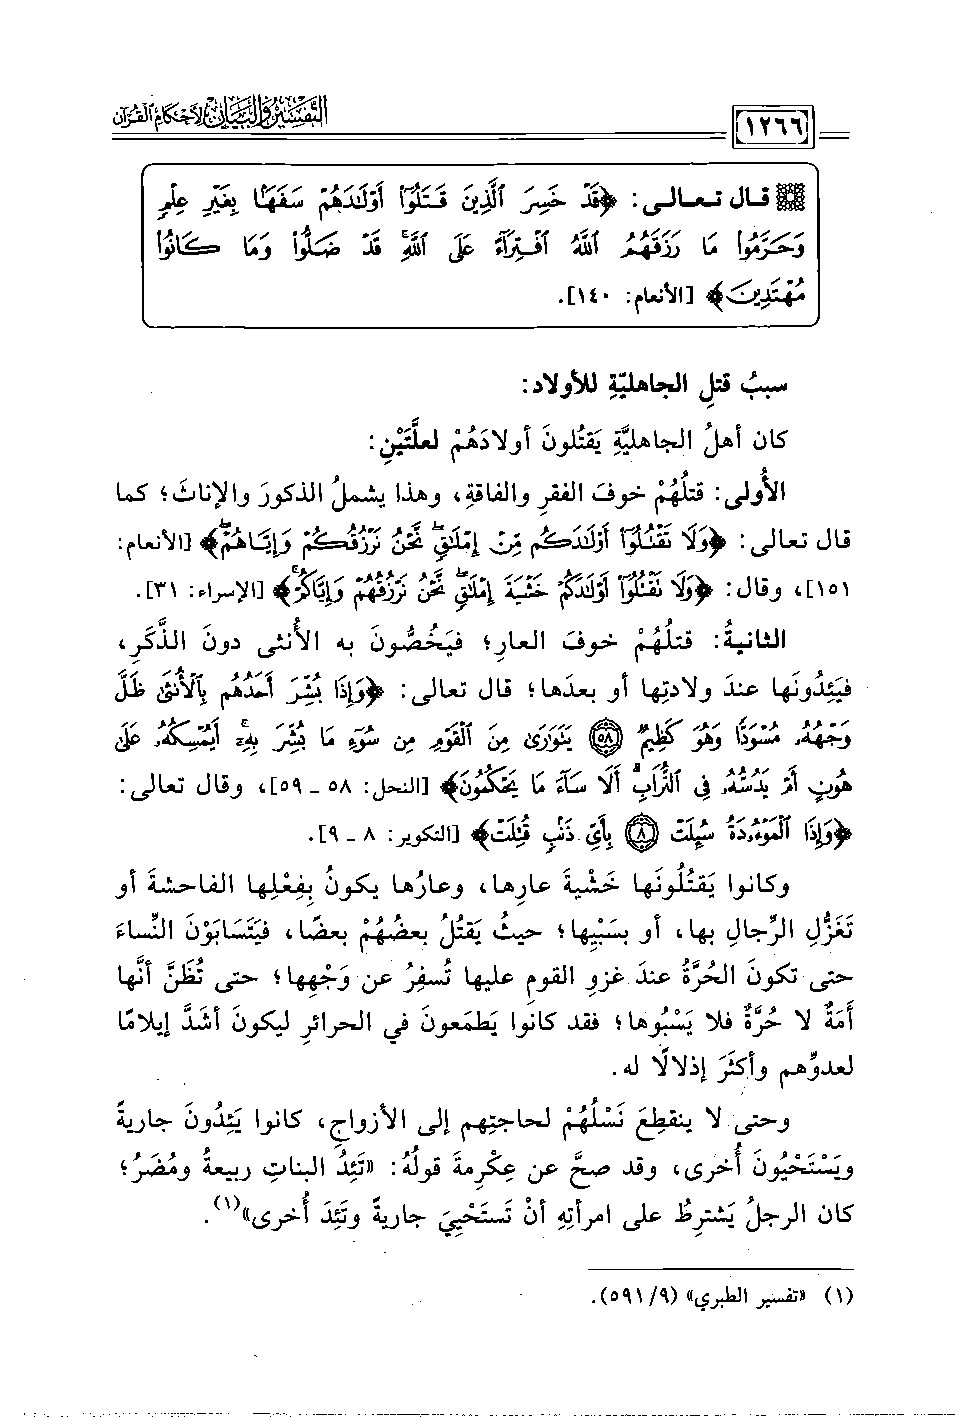 التفسير والبيان لأحكام القرآن
١٢٦٦
قال تعالى: ﴿قَدْ خَسِرَ ٱلَّذِينَ قَتَلُوٓا۟ أَوْلَٰدَهُمْ سَفَهًۢا بِغَيْرِ عِلْمٍ
وَحَرَّمُوا۟ مَا رَزَقَهُمُ ٱللَّهُ ٱفْتِرَآءً عَلَى ٱللَّهِ ۚ قَدْ ضَلُّوا۟ وَمَا كَانُوا۟
مُهْتَدِينَ﴾ [الأنعام: ١٤٠].
سببُ قتلِ الجاهليَّةِ للأولاد:
كان أهلُ الجاهليَّةِ يَقتُلونَ أولادَهُمْ لعلَّتَيْنِ:
الأُولى: قتلُهُمْ خوفَ الفقرِ والفاقةِ، وهذا يشملُ الذكورَ والإناثَ؛ كما
قال تعالى: ﴿وَلَا تَقْتُلُوٓا۟ أَوْلَٰدَكُم مِّنْ إِمْلَٰقٍ ۖ نَّحْنُ نَرْزُقُكُمْ وَإِيَّاهُمْ ۖ﴾ [الأنعام:
١٥١]، وقال: ﴿وَلَا تَقْتُلُوٓا۟ أَوْلَٰدَكُمْ خَشْيَةَ إِمْلَٰقٍ ۖ نَّحْنُ نَرْزُقُهُمْ وَإِيَّاكُمْ ۚ﴾ [الإسراء: ٣١].
الثانيةُ: قتلُهُمْ خوفَ العارِ؛ فيَخُصُّونَ به الأنثى دونَ الذَّكَرِ،
فيَئِدُونَها عندَ ولادتِها أو بعدَها؛ قال تعالى: ﴿وَإِذَا بُشِّرَ أَحَدُهُم بِٱلْأُنثَىٰ ظَلَّ
وَجْهُهُۥ مُسْوَدًّا وَهُوَ كَظِيمٌ ٥٨ يَتَوَٰرَىٰ مِنَ ٱلْقَوْمِ مِن سُوٓءِ مَا بُشِّرَ بِهِۦٓ ۚ أَيُمْسِكُهُۥ عَلَىٰ
هُونٍ أَمْ يَدُسُّهُۥ فِى ٱلتُّرَابِ ۗ أَلَا سَآءَ مَا يَحْكُمُونَ﴾ [النحل: ٥٨ - ٥٩]، وقال تعالى:
﴿وَإِذَا ٱلْمَوْءُۥدَةُ سُئِلَتْ ٨ بِأَىِّ ذَنۢبٍ قُتِلَتْ﴾ [التكوير: ٨ - ٩].
وكانوا يَقتُلُونَها خَشْيةَ عارِها، وعارُها يكونُ بِفِعْلِها الفاحشةَ أو
تَغَزُّلِ الرِّجالِ بها، أو بسَبْيِها؛ حيثُ يَقتُلُ بعضُهُمْ بعضًا، فيَتَسَابَوْنَ النِّساءَ
حتى تكونَ الحُرَّةُ عندَ غزوِ القومِ عليها تُسفِرُ عن وَجْهِها؛ حتى تُظَنَّ أنَّها
أَمَةٌ لا حُرَّةٌ فلا يَسْبُوها؛ فقد كانوا يَطمَعونَ في الحرائرِ ليكونَ أشدَّ إيلامًا
لعدوِّهم وأكثَرَ إذلالًا له.
وحتى لا ينقطِعَ نَسْلُهُمْ لحاجتِهم إلى الأزواجِ، كانوا يَئِدُونَ جاريةً
ويَسْتَحْيُونَ أُخرى، وقد صحَّ عن عِكْرِمةَ قولُهُ: «تَئِدُ البناتِ ربيعةُ ومُضَرُ؛
كان الرجلُ يَشترِطُ على امرأتِهِ أنْ تَستَحْيِيَ جاريةً وتَئِدَ أُخرى»(١).
(١) «تفسير الطبري» (٩/ ٥٩١).